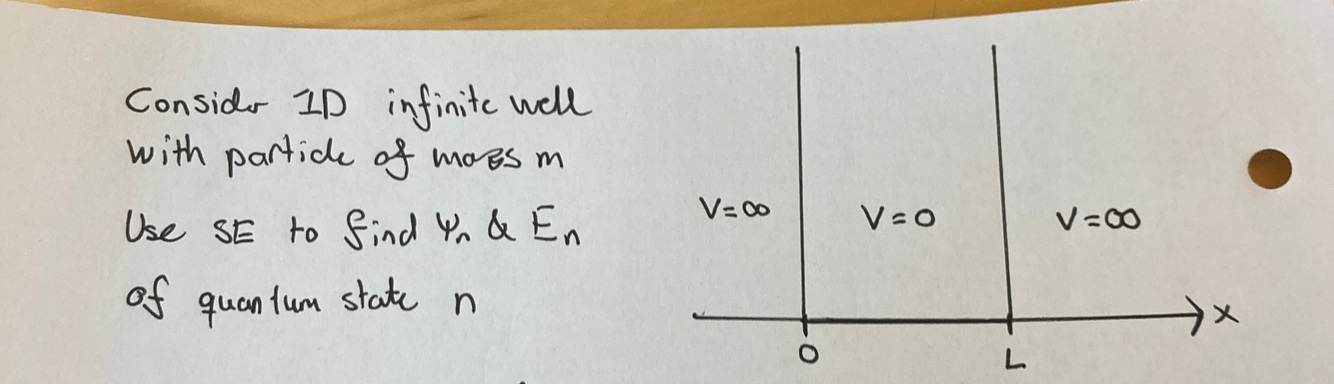 Consider 1D infinite well
with particle of mass m
Use SE to find Ψn & En
of quantum state n
V=∞ V=0 V=∞
x
0 L